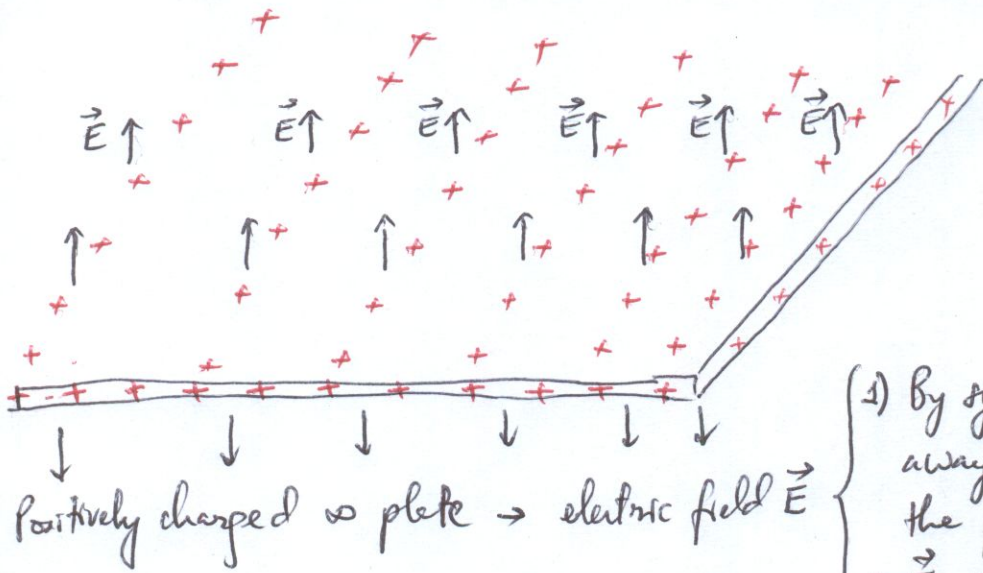 E⃗ E⃗ E⃗ E⃗ E⃗ E⃗
Positively charged ∞ plate → electric field E⃗
1) By
away
the